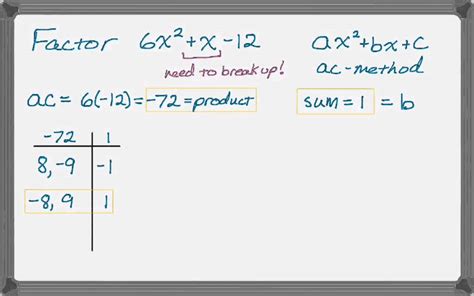 Factor 6x²+x-12 ax²+bx+c
need to break up! ac-method
ac = 6(-12) = -72 = product sum = 1 = b
-72 1
8, -9 -1
-8, 9 1